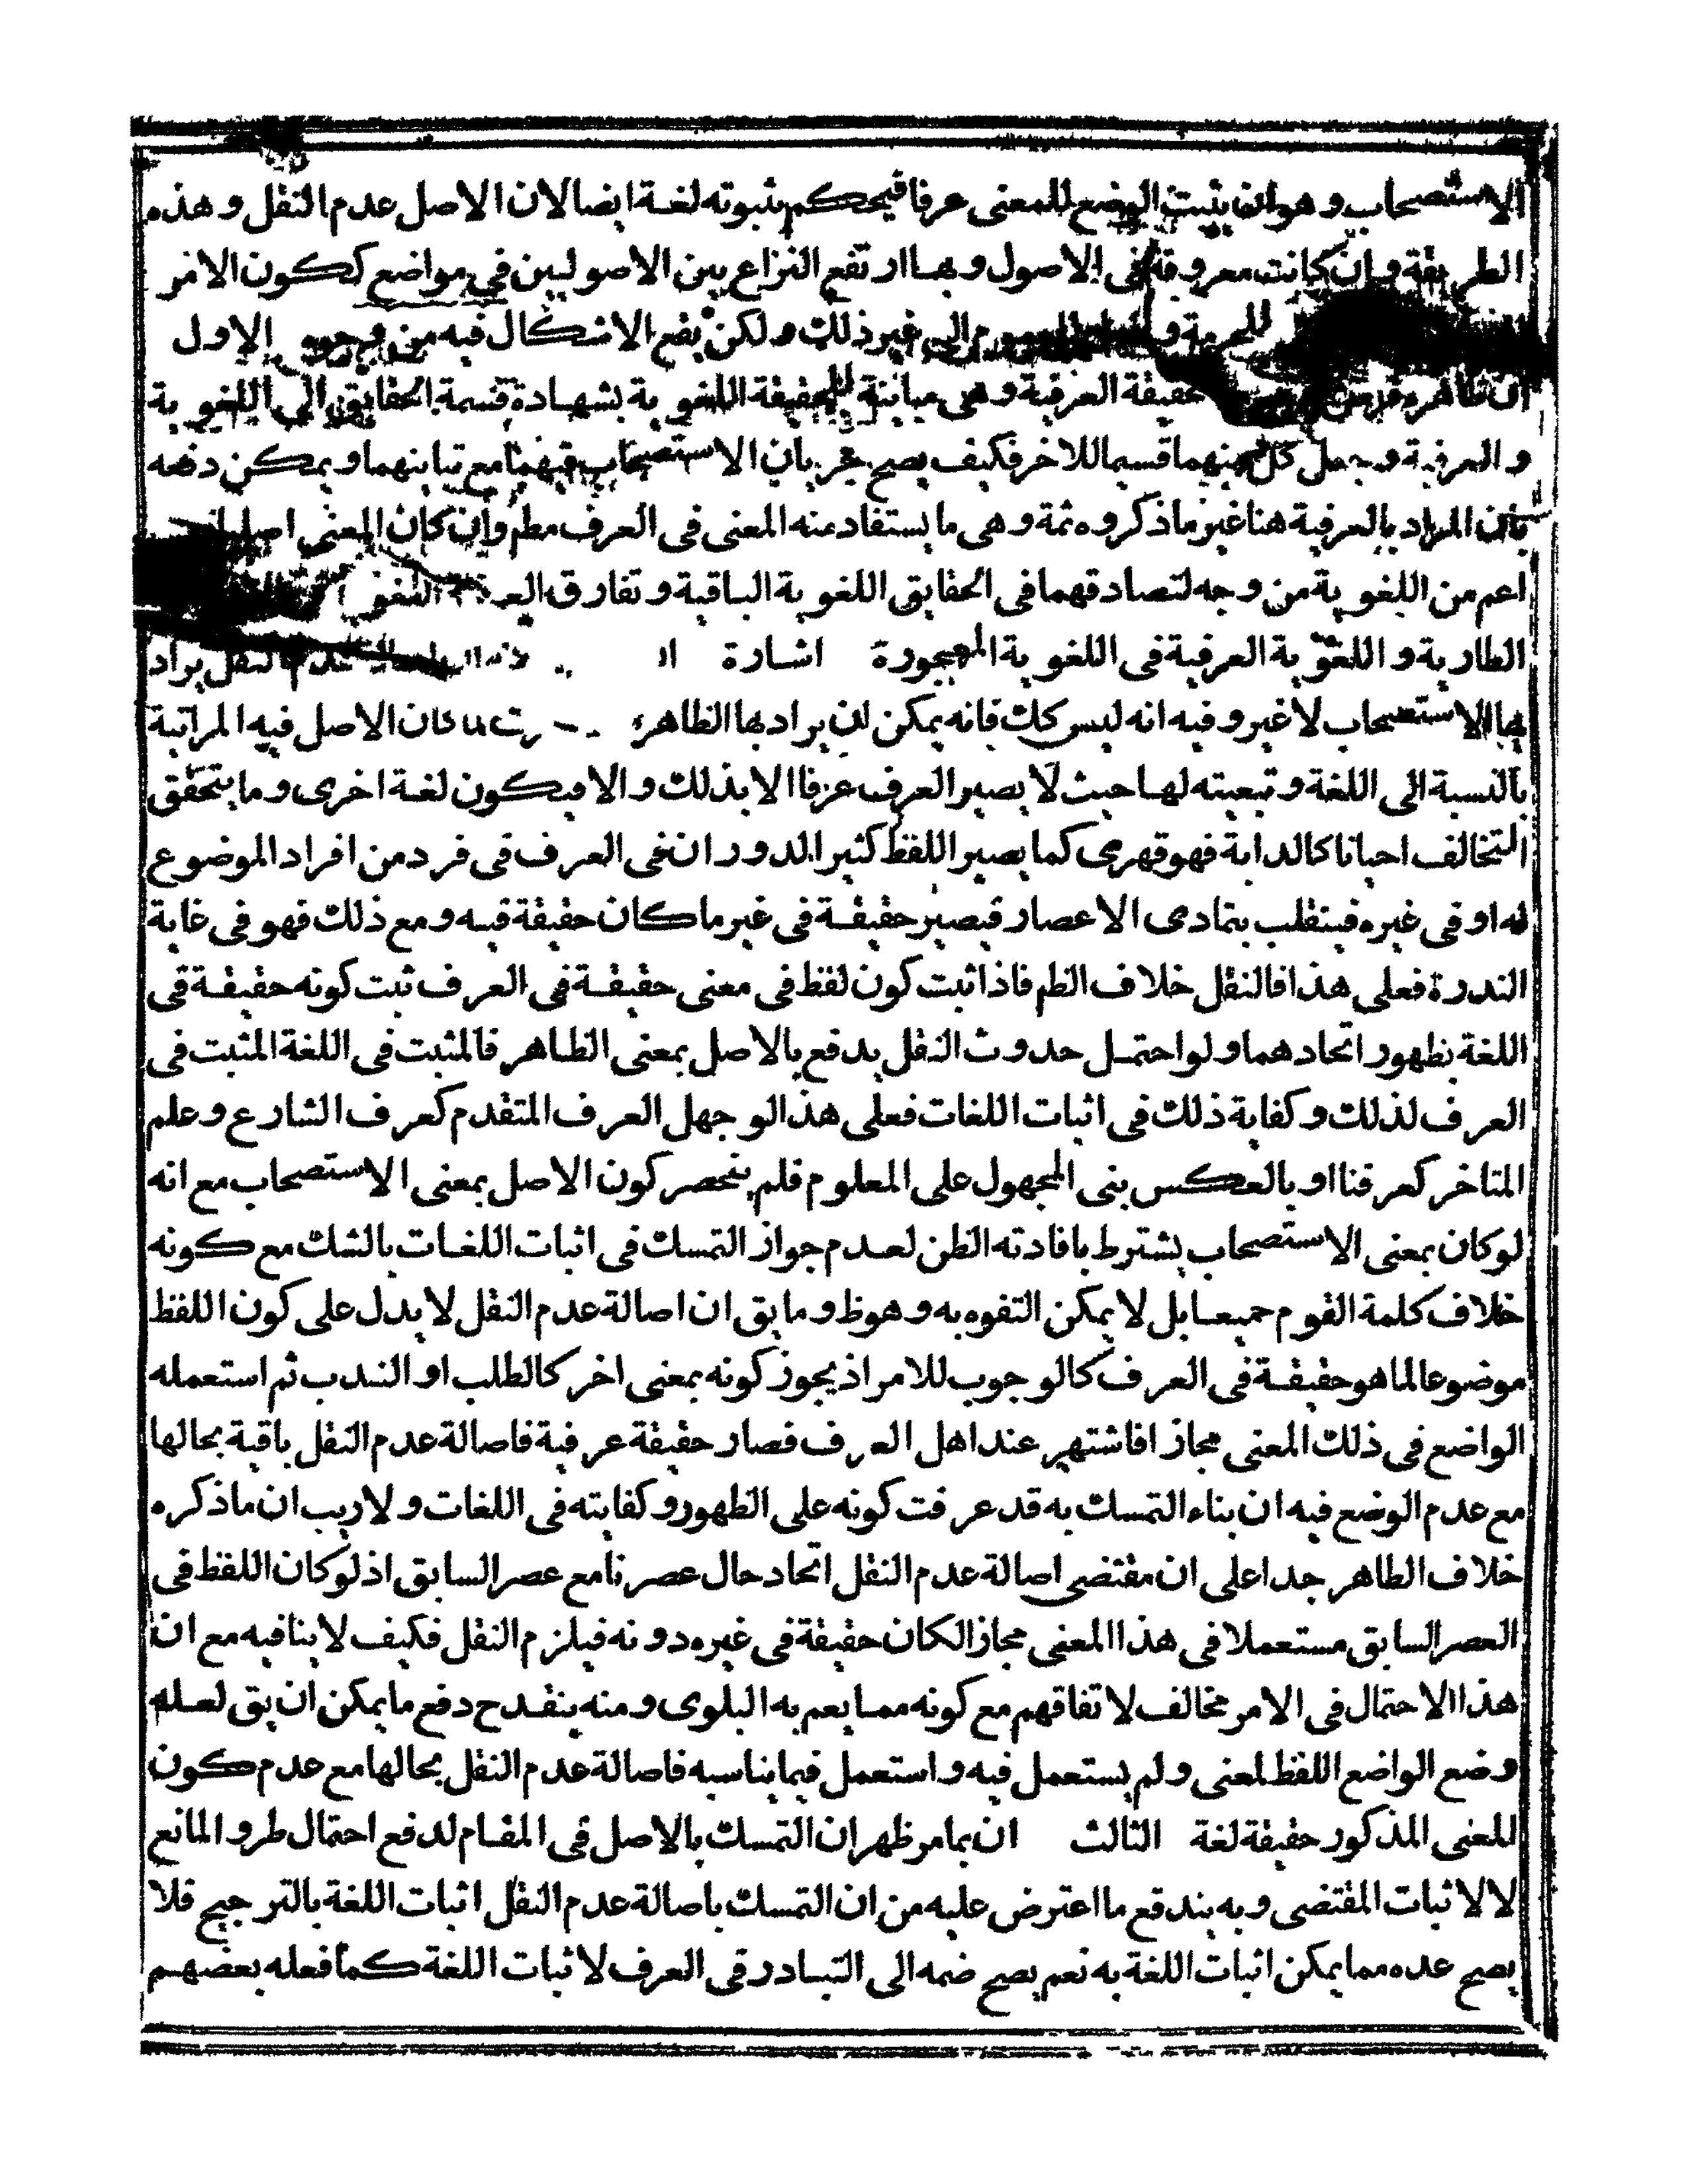 الاستصحاب و هو انما يثبت الوضع للمعنى عرفا فيحكم بثبوته لغة ايضا لان الاصل عدم النقل و هذه
الطريقة و ان كانت معروفة فى الاصول و بها ارتفع النزاع بين الاصوليين في مواضع ككون الامر
للحرمة و الى غير ذلك و لكن يقع الاشكال فيه من وجوه الاول
ان ظاهره حقيقة العرفية و هى مباينة للحقيقة اللغوية بشهادة قسمة الحقايق الى اللغوية
و العرفية و جعل كل منهما قسيما للاخر فكيف يصح جريان الاستصحاب فيهما مع تباينهما و يمكن دفعه
بان المراد بالعرفية هنا غير ما ذكروه ثمة و هى ما يستفاد منه المعنى فى العرف مطم و ان كان المعنى اصليا
اعم من اللغوية من وجه لتصادقهما فى الحقايق اللغوية الباقية و تفارق
الطارية و اللغوية العرفية فى اللغوية المهجورة اشارة عدم النقل يراد
بها الاستصحاب لا غير و فيه انه ليس كك فانه يمكن ان يراد بها الظاهر كان الاصل فيه المراتبة
بالنسبة الى اللغة و تبعيته لها حيث لا يصير العرف عرفا الا بذلك و الا فيكون لغة اخرى و ما يتحقق
التخالف احيانا كالدابة فهو قهرى كما يصير اللفظ كثير الدوران فى العرف فى فرد من افراد الموضوع
له او فى غيره فينقلب بتمادى الاعصار فيصير حقيقة فى غير ما كان حقيقة فيه و مع ذلك فهو فى غاية
الندرة فعلى هذا فالنقل خلاف الظم فاذا ثبت كون لفظ فى معنى حقيقة فى العرف ثبت كونه حقيقة فى
اللغة بظهور اتحادهما و لو احتمل حدوث النقل يدفع بالاصل بمعنى الظاهر فالمثبت فى اللغة المثبت فى
العرف لذلك و كفاية ذلك فى اثبات اللغات فعلى هذا لو جهل العرف المتقدم كعرف الشارع و علم
المتاخر كعرفنا او بالعكس بنى المجهول على المعلوم فلم ينحصر كون الاصل بمعنى الاستصحاب مع انه
لو كان بمعنى الاستصحاب يشترط بافادته الظن لعدم جواز التمسك فى اثبات اللغات بالشك مع كونه
خلاف كلمة القوم جميعا بل لا يمكن التفوه به و هو ظ و ما يق ان اصالة عدم النقل لا يدل على كون اللفظ
موضوعا لما هو حقيقة فى العرف كالوجوب للامر اذ يجوز كونه بمعنى اخر كالطلب او الندب ثم استعمله
الواضع فى ذلك المعنى مجازا فاشتهر عند اهل العرف فصار حقيقة عرفية فاصالة عدم النقل باقية بحالها
مع عدم الوضع فيه ان بناء التمسك به قد عرفت كونه على الظهور و كفايته فى اللغات و لا ريب ان ما ذكره
خلاف الظاهر جدا على ان مقتضى اصالة عدم النقل اتحاد حال عصرنا مع عصر السابق اذ لو كان اللفظ فى
العصر السابق مستعملا فى هذا المعنى مجازا لكان حقيقة فى غيره دونه فيلزم النقل فكيف لا ينافيه مع ان
هذا الاحتمال فى الامر مخالف لاتفاقهم مع كونه مما يعم به البلوى و منه ينقدح دفع ما يمكن ان يق لعله
وضع الواضع اللفظ لمعنى و لم يستعمل فيه و استعمل فيما يناسبه فاصالة عدم النقل بحالها مع عدم كون
للمعنى المذكور حقيقة لغة الثالث ان بما مر ظهر ان التمسك بالاصل فى المقام لدفع احتمال طرو المانع
لا لاثبات المقتضى و به يندفع ما اعترض عليه من ان التمسك باصالة عدم النقل اثبات اللغة بالترجيح فلا
يصح عده مما يمكن اثبات اللغة به نعم يصح ضمه الى التبادر فى العرف لاثبات اللغة كما فعله بعضهم